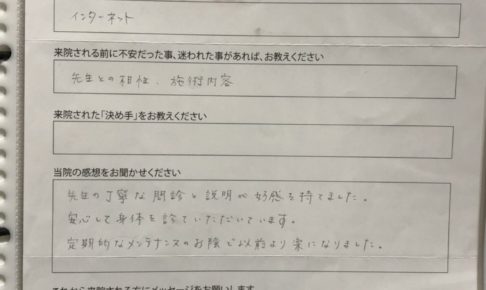 インターネット
来院される前に不安だった事、迷われた事があれば、お教えください
先生との相性、施術内容
来院された「決め手」をお教えください
当院の感想をお聞かせください
先生の丁寧な問診と説明が好感を持てました。
安心して身体を診ていただいています。
定期的なメンテナンスのお陰で以前より楽になりました。
これから来院される方にメッセージをお願いします